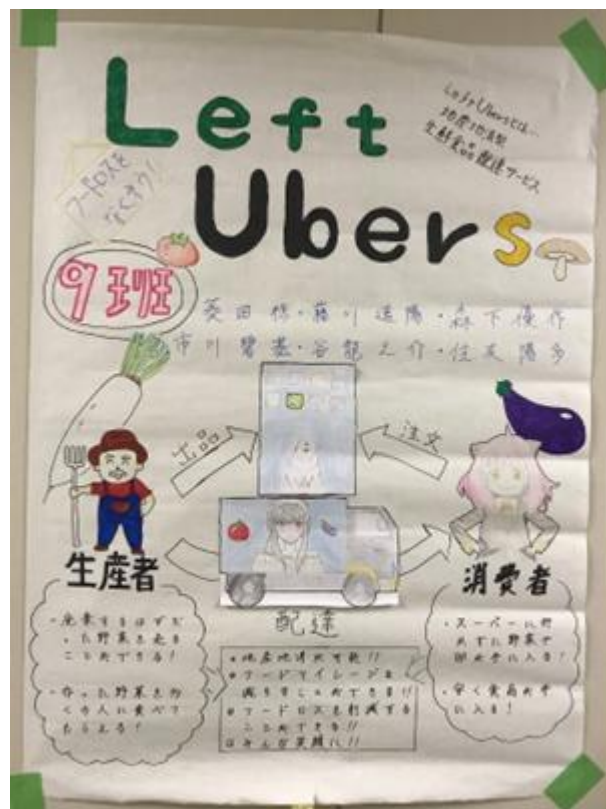 Left
Ubers
LeftUbersとは…
地産地消型
生鮮食品配達サービス
フードロスを
なくそう!
9班
市川碧基・谷龍之介・住友陽多
出品
注文
生産者
配達
消費者
・廃棄するはずだ
った野菜を売る
ことができる!
・作った野菜を多
くの人に食べて
もらえる!
・地産地消が可能!!
・フードマイレージを
減らすことができる!!
・フードロスを削減する
ことができる!!
・みんな笑顔に!!
・スーパーに行
かずに野菜を
手に入る!
・安く食品が手
に入る!